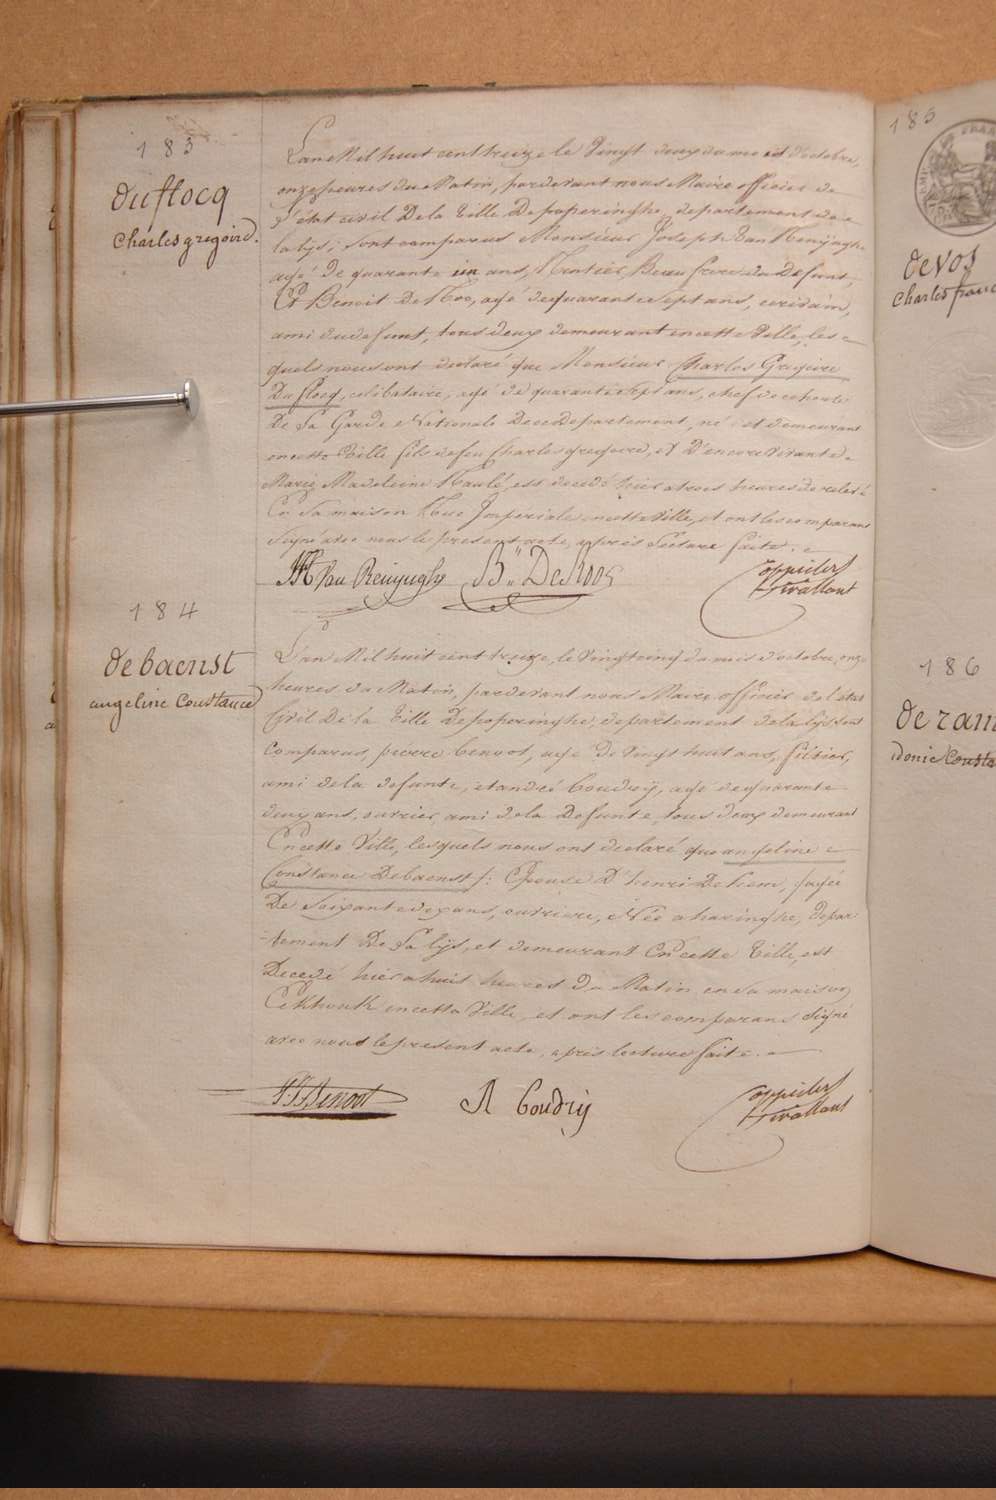 183
duflocq
charles gregoire.
L'an Mil huit cent treize le Vingt deux du mois d'octobre,
onze heures du Matin, pardevant nous Maire officier de
l'état civil De la Ville De poperinghe, departement de
la lijs, sont comparus Monsieur Joseph Van Renijnghe
agé de quarante un ans, Rentier, Beau frere du Defunt,
Et Benoit De Roo, agé de quarante sept ans, ecrivain,
ami du defunt, tous deux demeurant en cette Ville, les
quels nous ont declaré que Monsieur Charles Gregoire
Duflocq, celibataire, agé de quarante sept ans, chef de cohorte
De la Garde Nationale De ce Departement, né et demeurant
en cette Ville fils de feu Charles gregoire, et D'encore Vivante
Marie Madeleine Maulé, est decedé hier a trois heures de relevé
En sa maison Rue Imperiale en cette Ville, et ont les comparans
signé avec nous le present acte, après lecture faite.
Van Renynghe B.. De Roos
184
debaenst
angeline Constance
L'an Mil huit cent treize, le Vingt cinq du mois d'octobre, onze
heures du Matin, pardevant nous Maire officier de l'état
Civil De la Ville De poperinghe, departement de la lijs sont
comparus, pierre benoot, agé De Vingt huit ans, filtier,
ami de la defunte, et andré Coudrij, agé de quarante
deux ans, ouvrier, ami de la Defunte, tous deux demeurant
En cette Ville, lesquels nous ont declaré que angeline
Constance Debaenst /: Epouse D'henri Dehem, / agée
De Soixante dix ans, ouvriere, Née a haringhe, depar
-tement De la lijs, et demeurant En cette Ville, est
Decedé hier a huit heures Du Matin en sa maison
en cette Ville, et ont les comparans signé
avec nous le present acte, après lecture faite.
Benoot A Coudrij
185
devos
charles franc
186
de ram
Consta